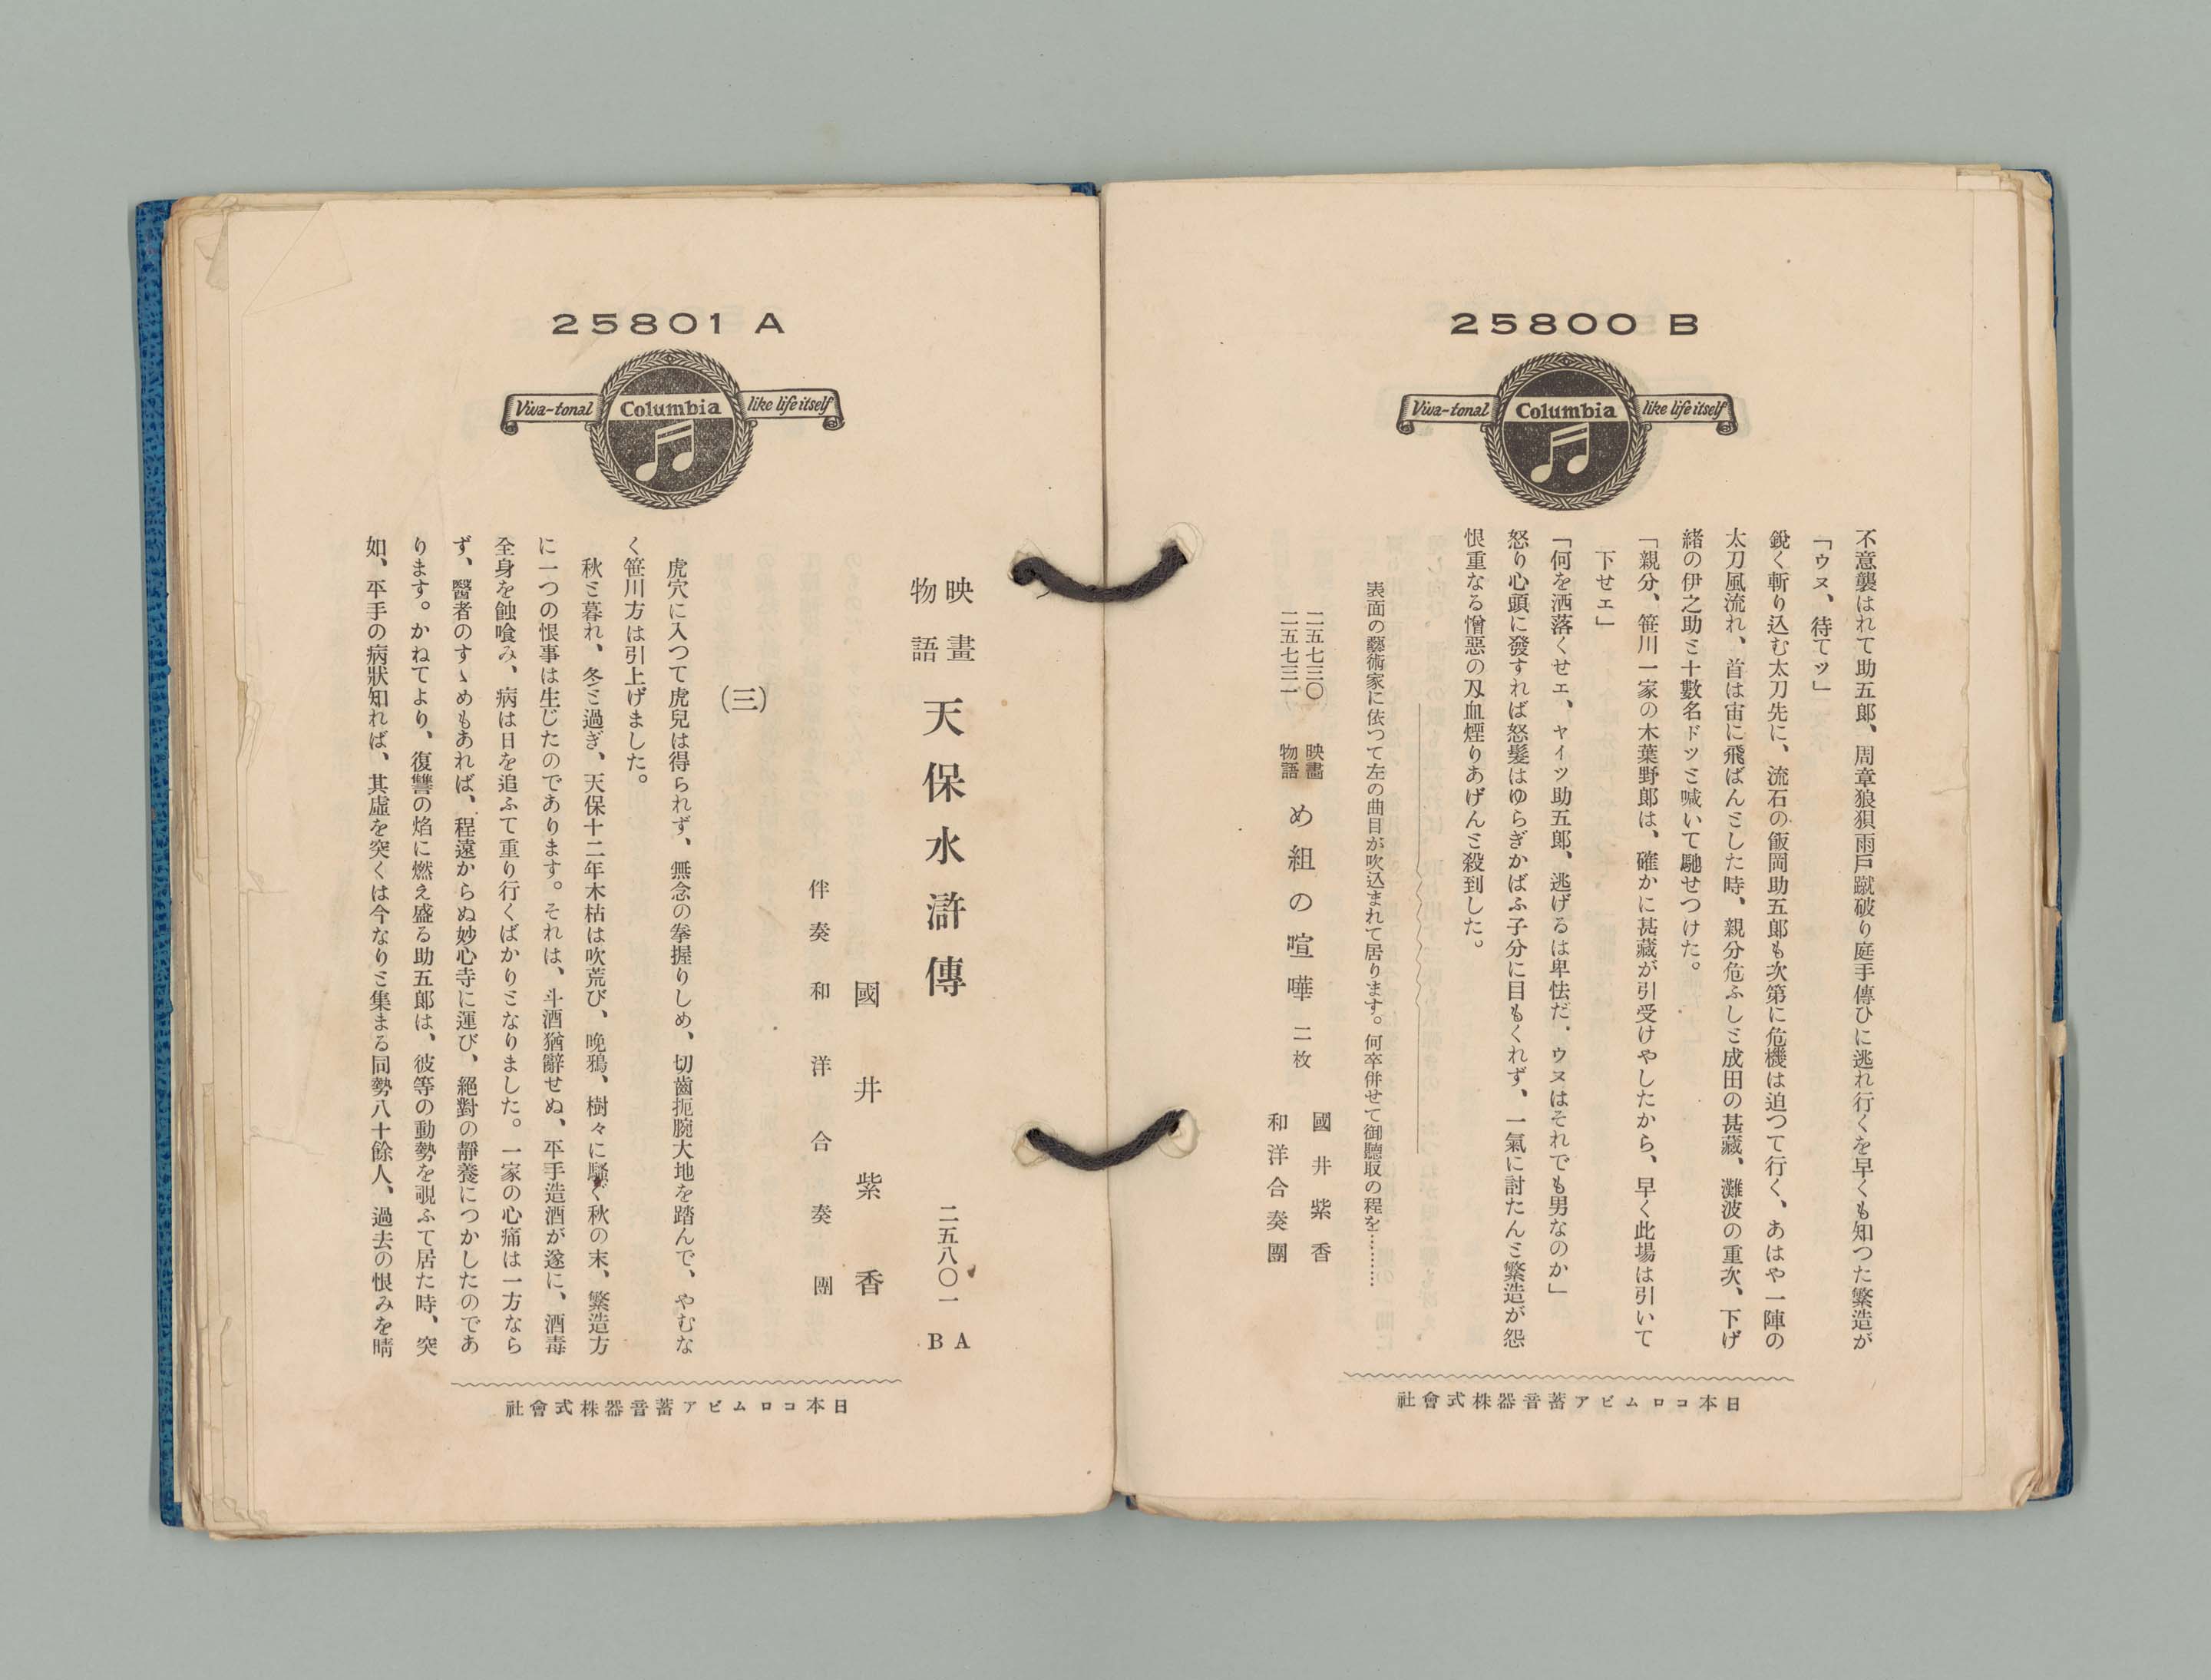 25800 B
Viva-tonal Columbia like life itself
不意襲はれて助五郎、周章狼狽雨戸蹴破り庭手傳ひに逃れ行くを早くも知つた繁造が
「ウヌ、待てッ」
鋭く斬り込む太刀先に、流石の飯岡助五郎も次第に危機は迫つて行く、あはや一陣の
太刀風流れ、首は宙に飛ばんとした時、親分危ふしと成田の甚藏、灘波の重次、下げ
緒の伊之助と十數名ドッと喊いて馳せつけた。
「親分、笹川一家の木葉野郎は、確かに甚藏が引受けやしたから、早く此場は引いて
下せェ」
「何を洒落くせェ、ャィッ助五郎、逃げるは卑怯だ．ゥヌはそれでも男なのか」
怒り心頭に發すれば怒髮はゆらぎかばふ子分に目もくれず、一氣に討たんと繁造が怨
恨重なる憎惡の刄血煙りあげんと殺到した。
表面の藝術家に依つて左の曲目が吹込まれて居ります。何卒併せて御聽取の程を………
二五七三〇
二五七三一
映畫
物語
め組の喧嘩 二枚
國井紫香
和洋合奏團
日本コロムビア蓄音器株式會社
25801 A
Viva-tonal Columbia like life itself
映畫
物語
天保水滸傳
二五八〇一 A
B
國井紫香
伴奏 和洋合奏團
(三)
虎穴に入つて虎兒は得られず、無念の拳握りしめ、切齒扼腕大地を踏んで、やむな
く笹川方は引上げました。
秋と暮れ、冬と過ぎ、天保十二年木枯は吹荒び、晩鴉、樹々に騷ぐ秋の末、繁造方
に一つの恨事は生じたのであります。それは、斗酒猶辭せぬ、平手造酒が遂に、酒毒
全身を蝕喰み、病は日を追ふて重り行くばかりとなりました。一家の心痛は一方なら
ず、醫者のすゝめもあれば、程遠からぬ妙心寺に運び、絕對の靜養につかしたのであ
ります。かねてより、復讐の焰に燃え盛る助五郎は、彼等の動勢を覗ふて居た時、突
如、平手の病狀知れば、其虛を突くは今なりと集まる同勢八十餘人、過去の恨みを晴
日本コロムビア蓄音器株式會社